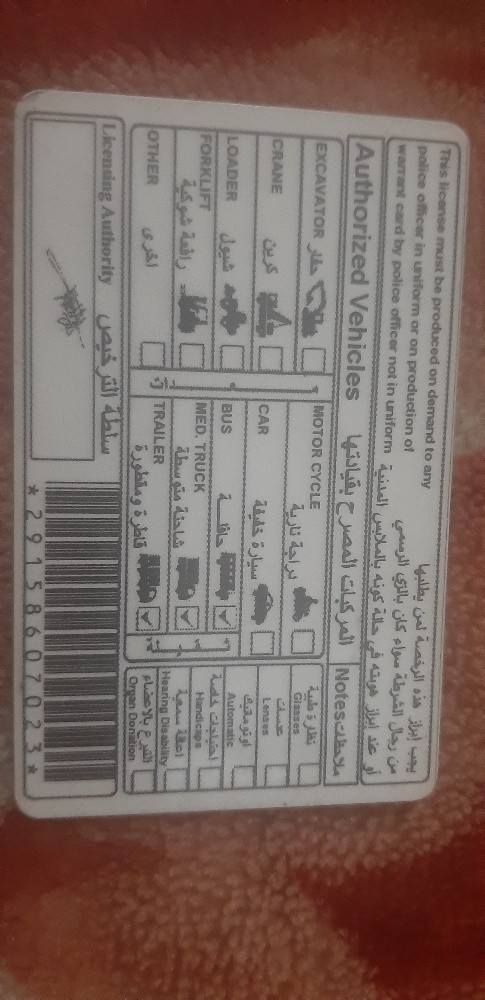 This license must be produced on demand to any
police officer in uniform or on production of
warrant card by police officer not in uniform
يجب إبراز هذه الرخصة لمن يطلبها
من رجال الشرطة سواء كان بالزي الرسمي
أو عند إبراز هويته في حالة كونه بالملابس المدنية
Authorized Vehicles المركبات المصرح بقيادتها
Notes ملاحظات
EXCAVATOR حفار
CRANE كرين
LOADER شيول
FORKLIFT رافعة شوكية
OTHER اخرى
MOTOR CYCLE دراجة نارية
CAR سيارة خفيفة
BUS حافلة
MED. TRUCK شاحنة متوسطة
TRAILER قاطرة ومقطورة
نظارة طبية
Glasses
عدسات
Lenses
اوتوماتيك
Automatic
احتياجات خاصة
Handicaps
اعاقة سمعية
Hearing Disability
التبرع بالاعضاء
Organ Donation
Licensing Authority سلطة الترخيص
*29158607023*